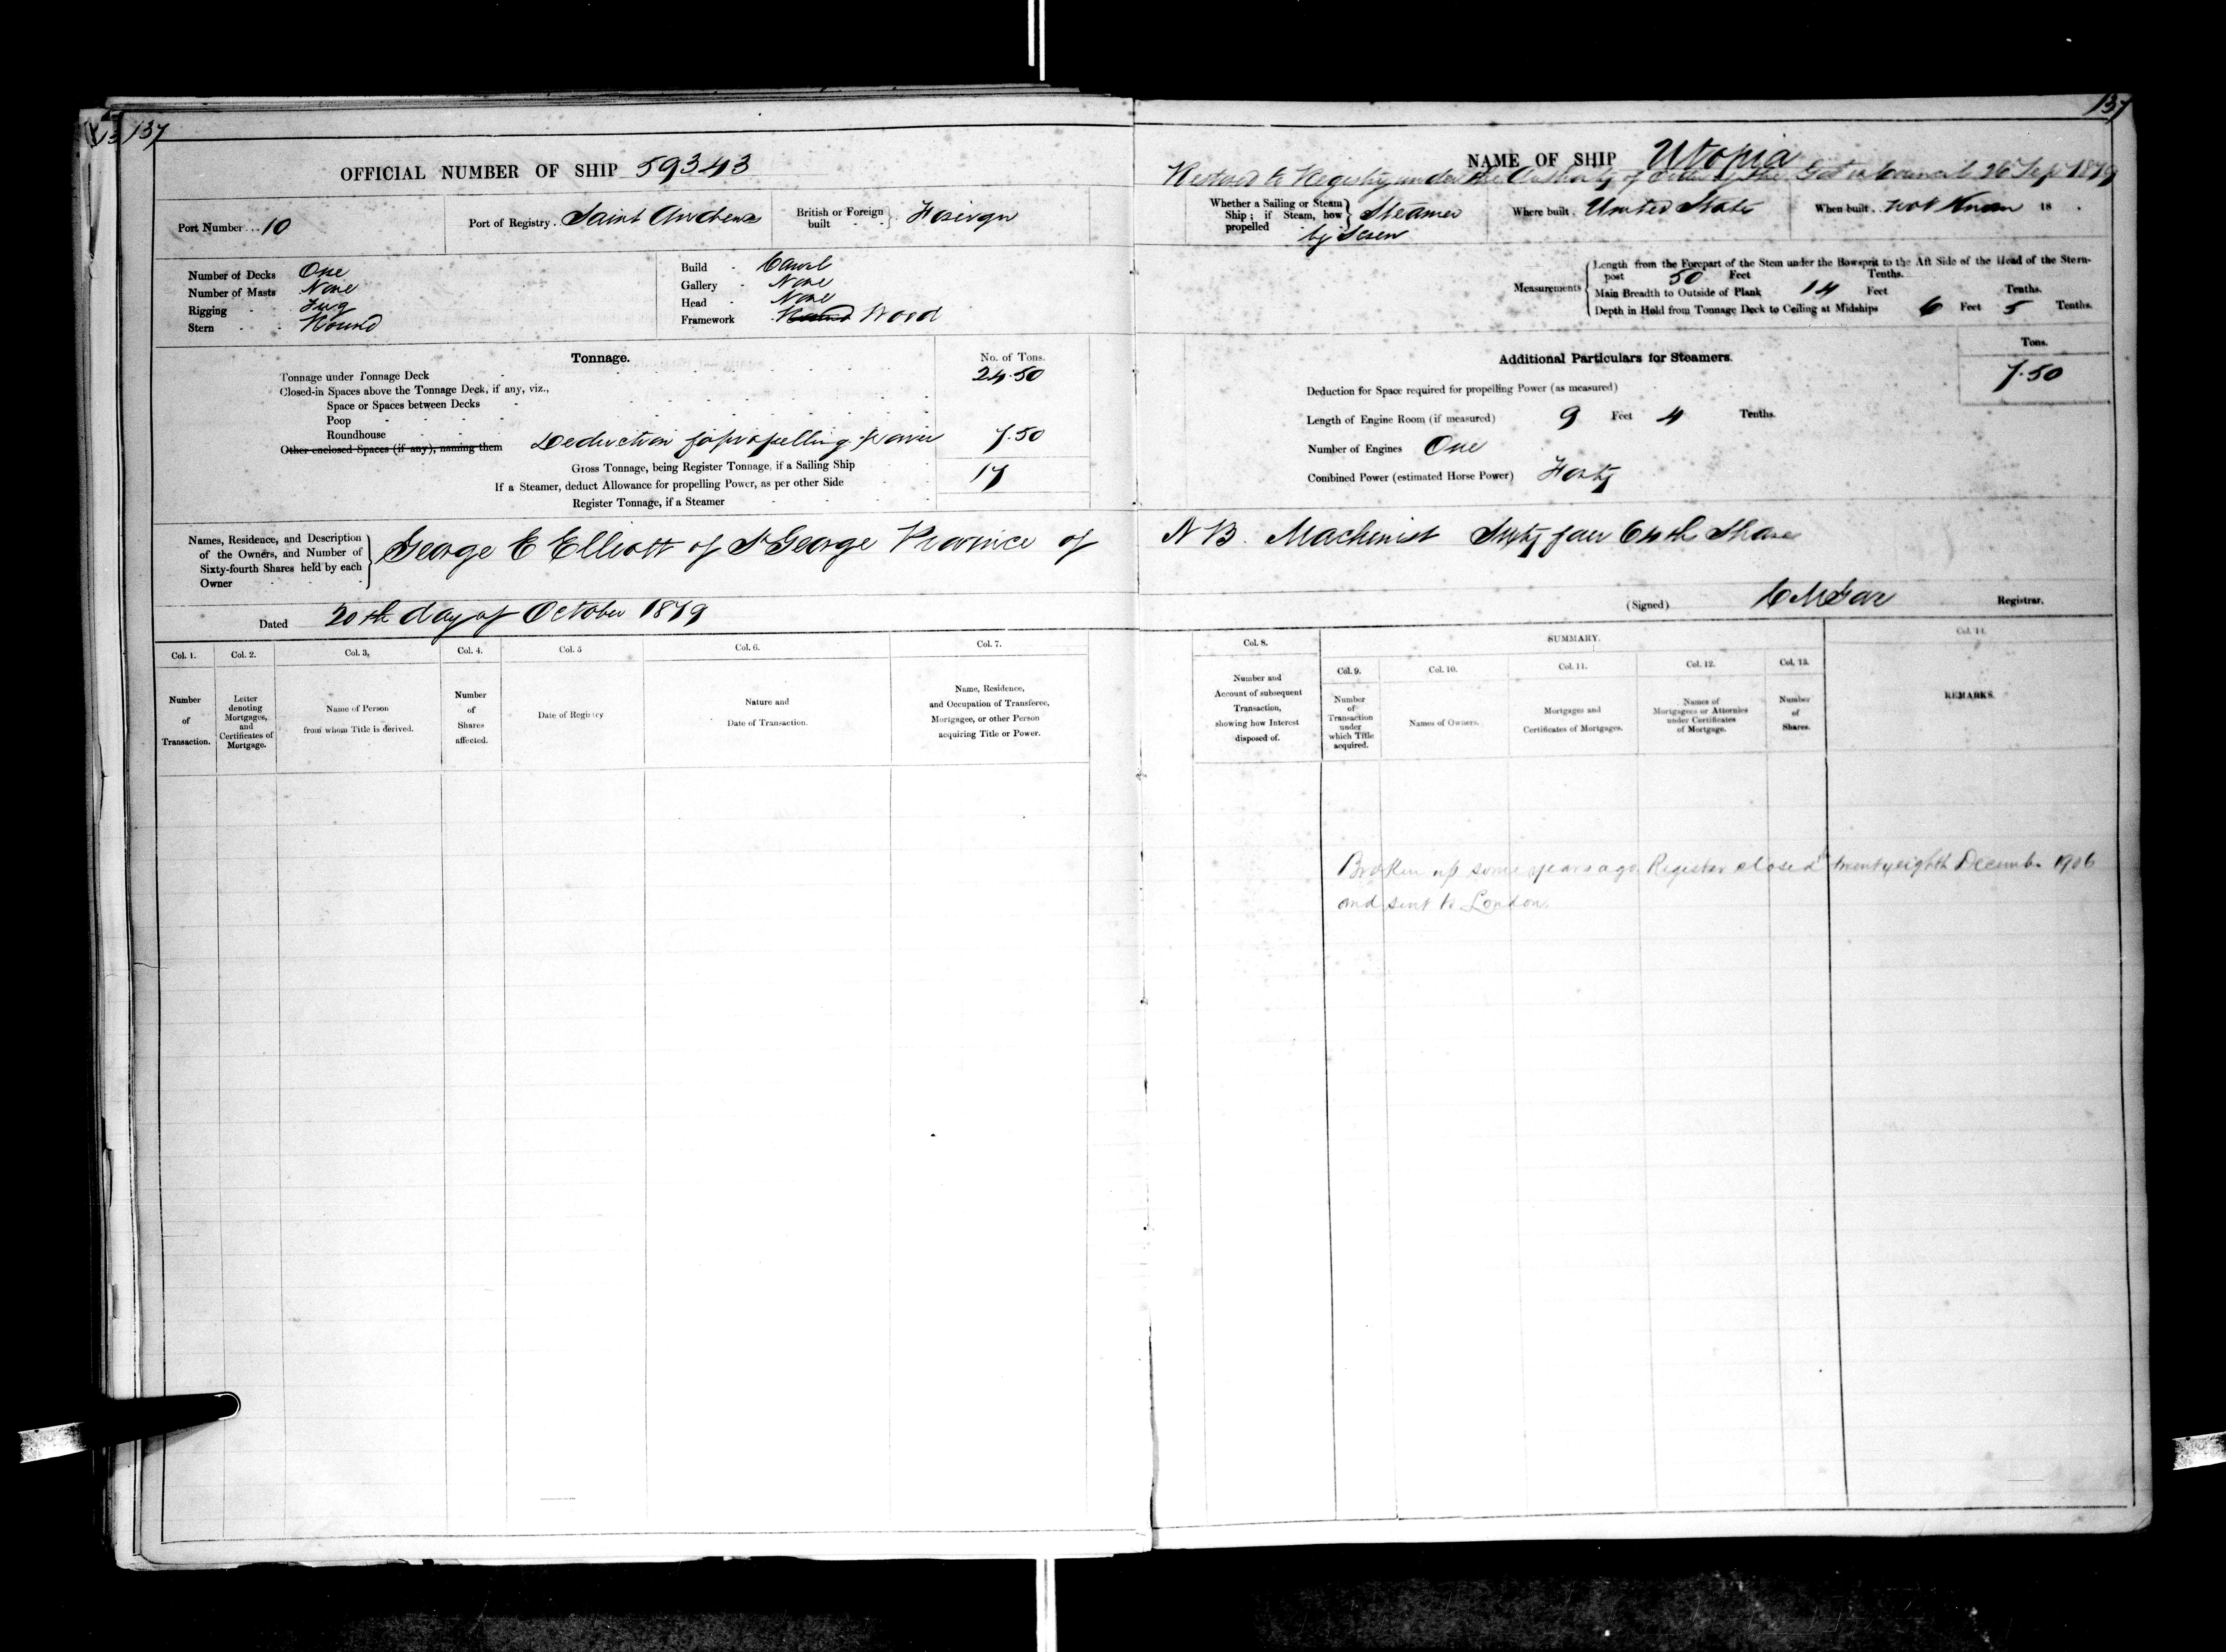 137
137
OFFICIAL NUMBER OF SHIP 59343
Port Number... 10
Port of Registry. Saint Andrews
British or Foreign built } Foreign
Number of Decks One
Number of Masts None
Rigging Tug
Stern Round
Build Carvel
Gallery None
Head None
Framework Wood
Tonnage.
No. of Tons.
Tonnage under Tonnage Deck 24.50
Closed-in Spaces above the Tonnage Deck, if any, viz.,
Space or Spaces between Decks
Poop
Roundhouse
Other enclosed Spaces (if any), naming them Deduction for propelling power 7.50
Gross Tonnage, being Register Tonnage, if a Sailing Ship
If a Steamer, deduct Allowance for propelling Power, as per other Side 17
Register Tonnage, if a Steamer
NAME OF SHIP Utopia
Restored to Registry under the Authority of Order of the in Council 26 Sep 1879
Whether a Sailing or Steam Ship; if Steam, how propelled } Steamer by Screw
Where built. United States
When built.. not Known 18 .
Measurements
Length from the Forepart of the Stem under the Bowsprit to the Aft Side of the Head of the Stern-
post 50 Feet Tenths.
Main Breadth to Outside of Plank 14 Feet Tenths.
Depth in Hold from Tonnage Deck to Ceiling at Midships 6 Feet 5 Tenths.
Additional Particulars for Steamers.
Tons.
Deduction for Space required for propelling Power (as measured) 7.50
Length of Engine Room (if measured) 9 Feet 4 Tenths.
Number of Engines One
Combined Power (estimated Horse Power) Forty
Names, Residence, and Description
of the Owners, and Number of
Sixty-fourth Shares held by each
Owner
George E Elliott of St George Province of N B. Machinist Sixty four 64th Shares
Dated 20th day of October 1879
(Signed) Registrar.
Col. 1.
Number
of
Transaction.
Col. 2.
Letter
denoting
Mortgages,
and
Certificates of
Mortgage.
Col. 3,
Name of Person
from whom Title is derived.
Col. 4.
Number
of
Shares
affected.
Col. 5
Date of Registry
Col. 6.
Nature and
Date of Transaction.
Col. 7.
Name, Residence,
and Occupation of Transferee,
Mortgagee, or other Person
acquiring Title or Power.
Col. 8.
Number and
Account of subsequent
Transaction,
showing how Interest
disposed of.
SUMMARY.
Col. 9.
Number
of
Transaction
under
which Title
acquired.
Col. 10.
Names of Owners.
Col. 11.
Mortgages and
Certificates of Mortgages.
Col. 12.
Names of
Mortgagees or Attornies
under Certificates
of Mortgage.
Col. 13.
Number
of
Shares.
Col. 14.
REMARKS.
Broken up some years ago Register closed twentyeighth December 1906
and sent to London